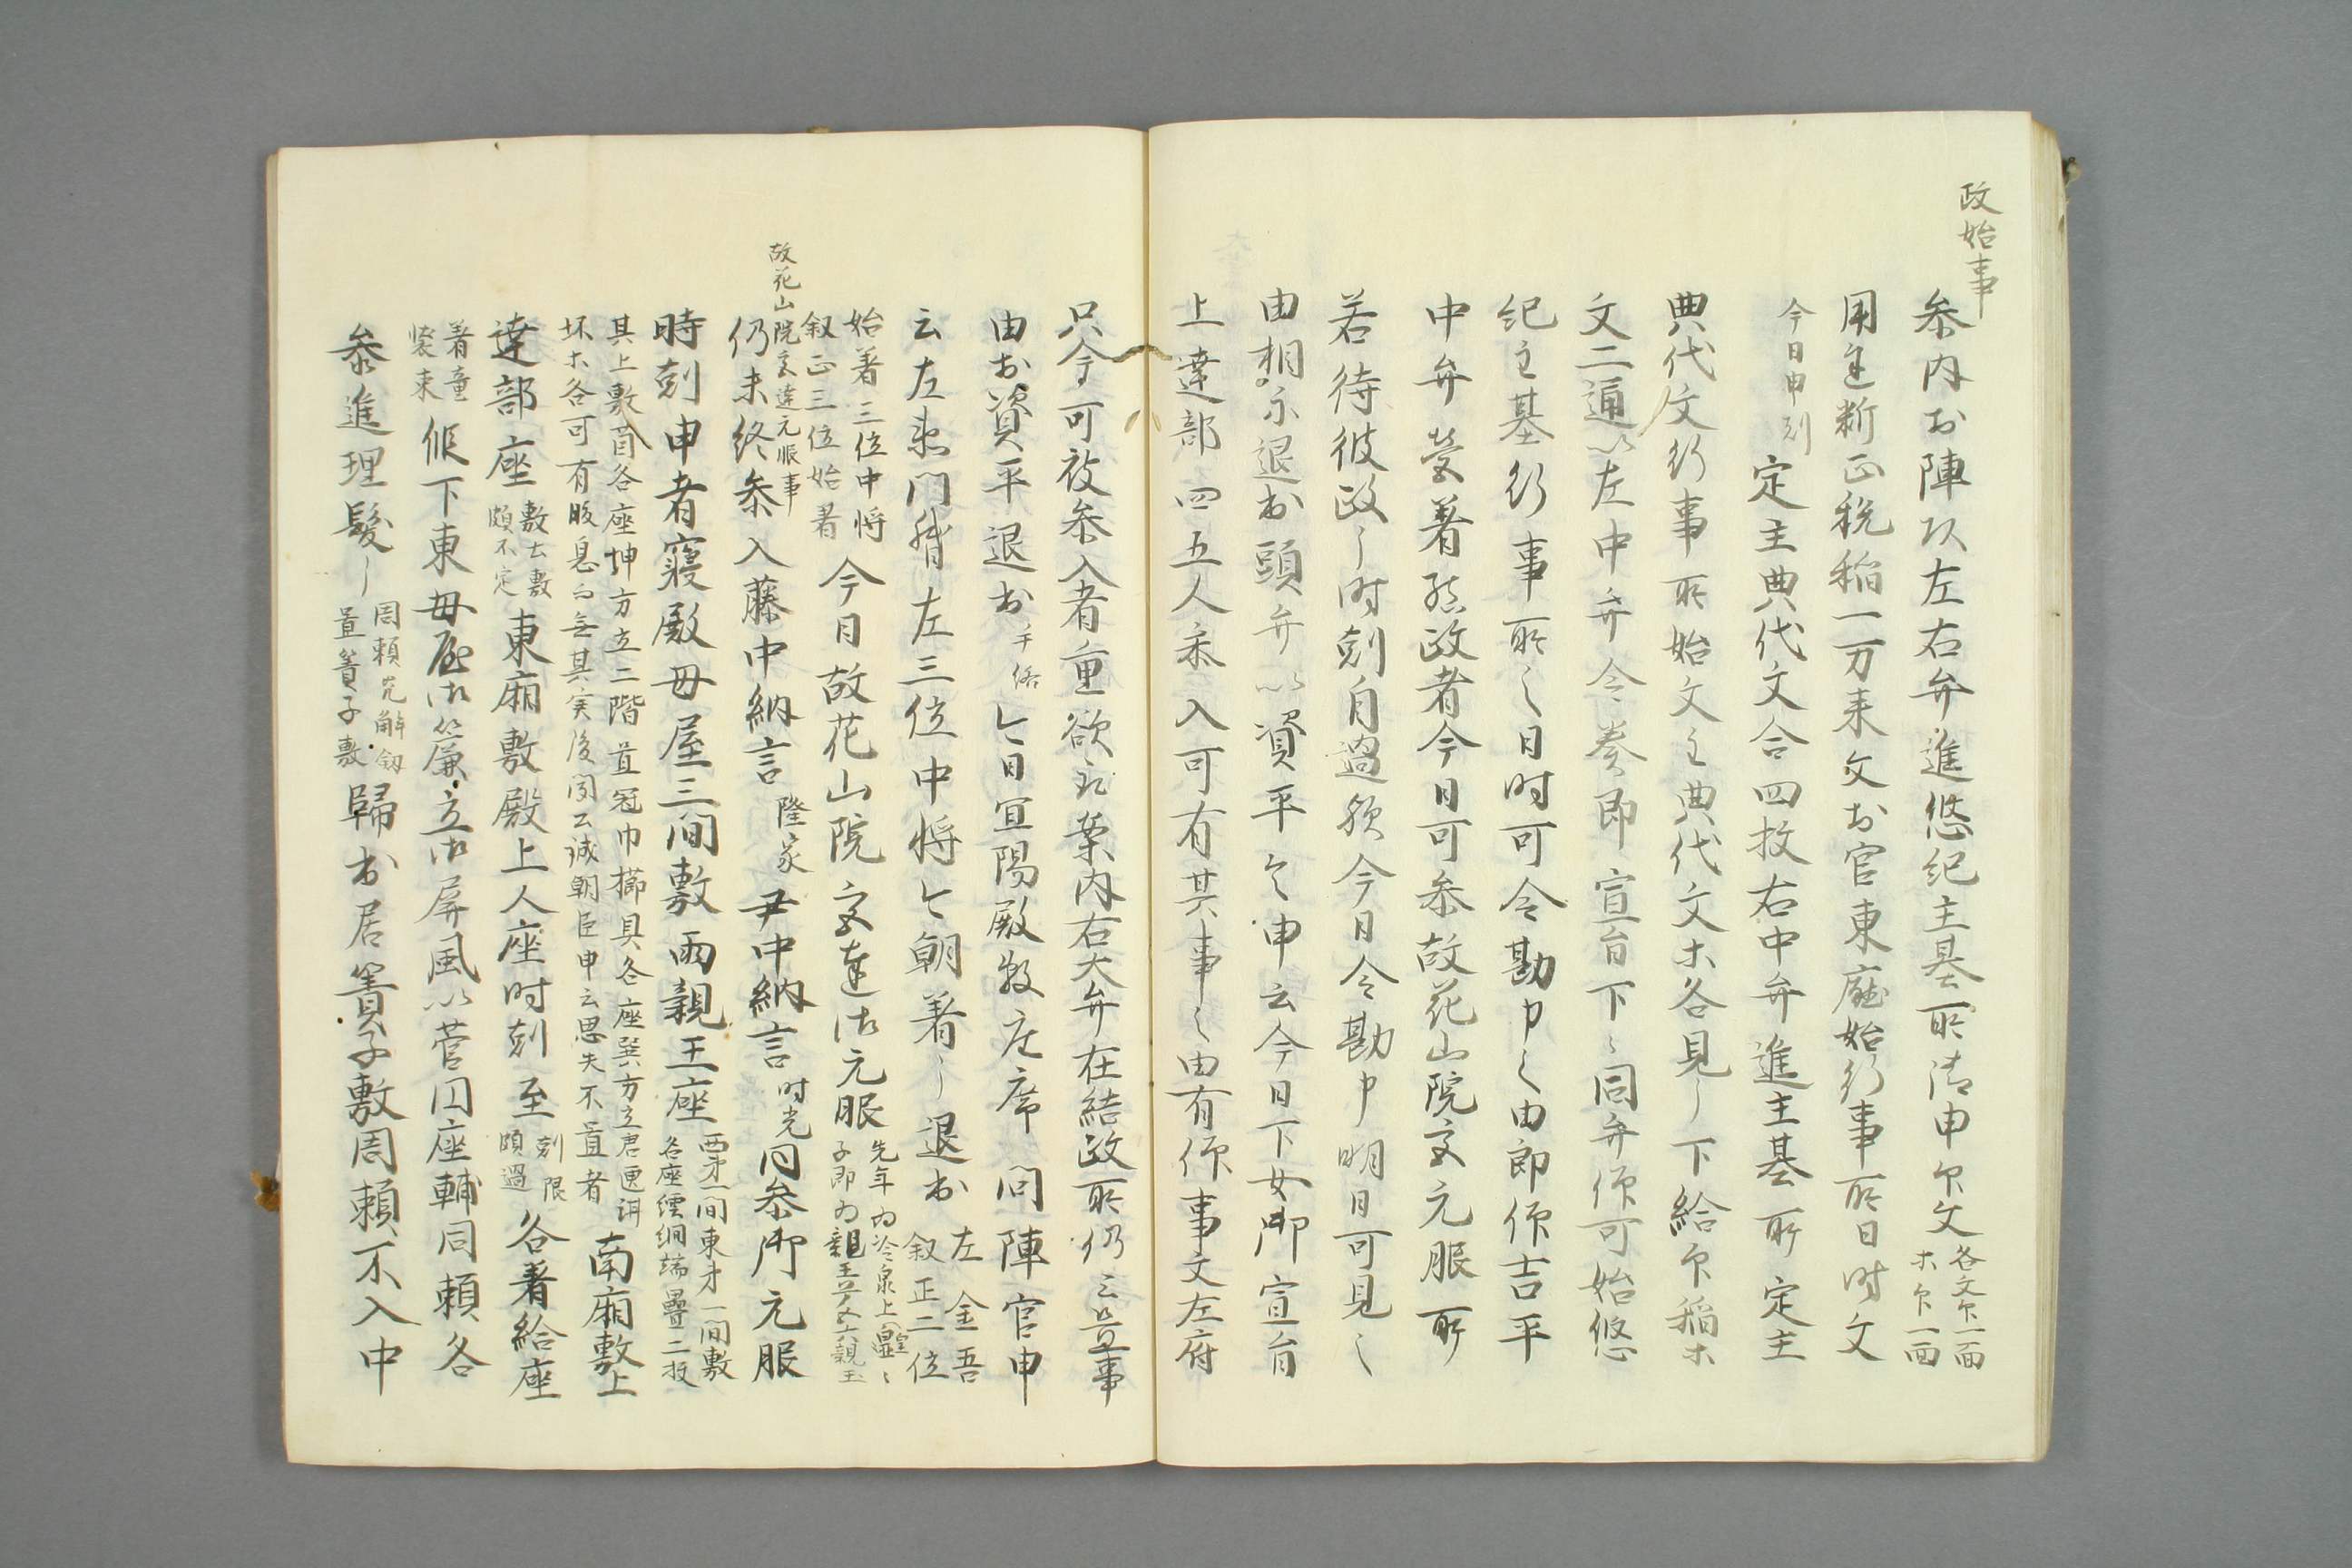 政始事
参内於陣以左右弁進悠紀主基所請申印文各文印一面
木印一面
用途新正税稲一万束文於官東廳始行事所日時文
今日申刻定主典代文合四枚右中弁進主基所定主
典代文行事所始文主典代文木各見了下給印稲木
文二通以左中弁令奏即宣旨下々同弁仰可始悠
紀主基行事所之日時可令勘申之由即仰吉平
中弁 着 政者今日可参故花山院宮元服所
若待彼政了時剋自過欤今日令勘申明日可見之
由相示退出頭弁以資平令申云今日下女御宣旨
上達部四五人参入可有其事之由有仰事文左府
只今可被参入者重欲取案内右大弁在結政所仍
由於資平退出 今日宜陽殿 座席 問陣官申
云左 門督左三位中将今朝着了退出左金吾
叙正二位
始着三位中将
叙正三位始着今日故花山院宮達御元服先年為冷泉上皇
子即為親王 五六親王
故花山院宮達元服事
仍未終参入藤中納言隆家尹中納言时光同参御元服
時剋申者寝殿母屋三間敷両親王座西才一間東才一間敷
各座繧繝端疊二枚
其上敷茵各座坤方立二階置冠巾櫛具各座巽方立唐匣泔
坏木各可有脇息而無其実後聞云誠朝臣申云思失不置者南廂敷上
達部座敷 敷
頗不定東廂敷殿上人座時剋至剋限
頗過各着給座
着童
装束候下東母屋御簾立御屏風以菅円座輔同頼各
参進理髪了周頼先解釼
置簀子敷歸出居簀子敷周頼不入中